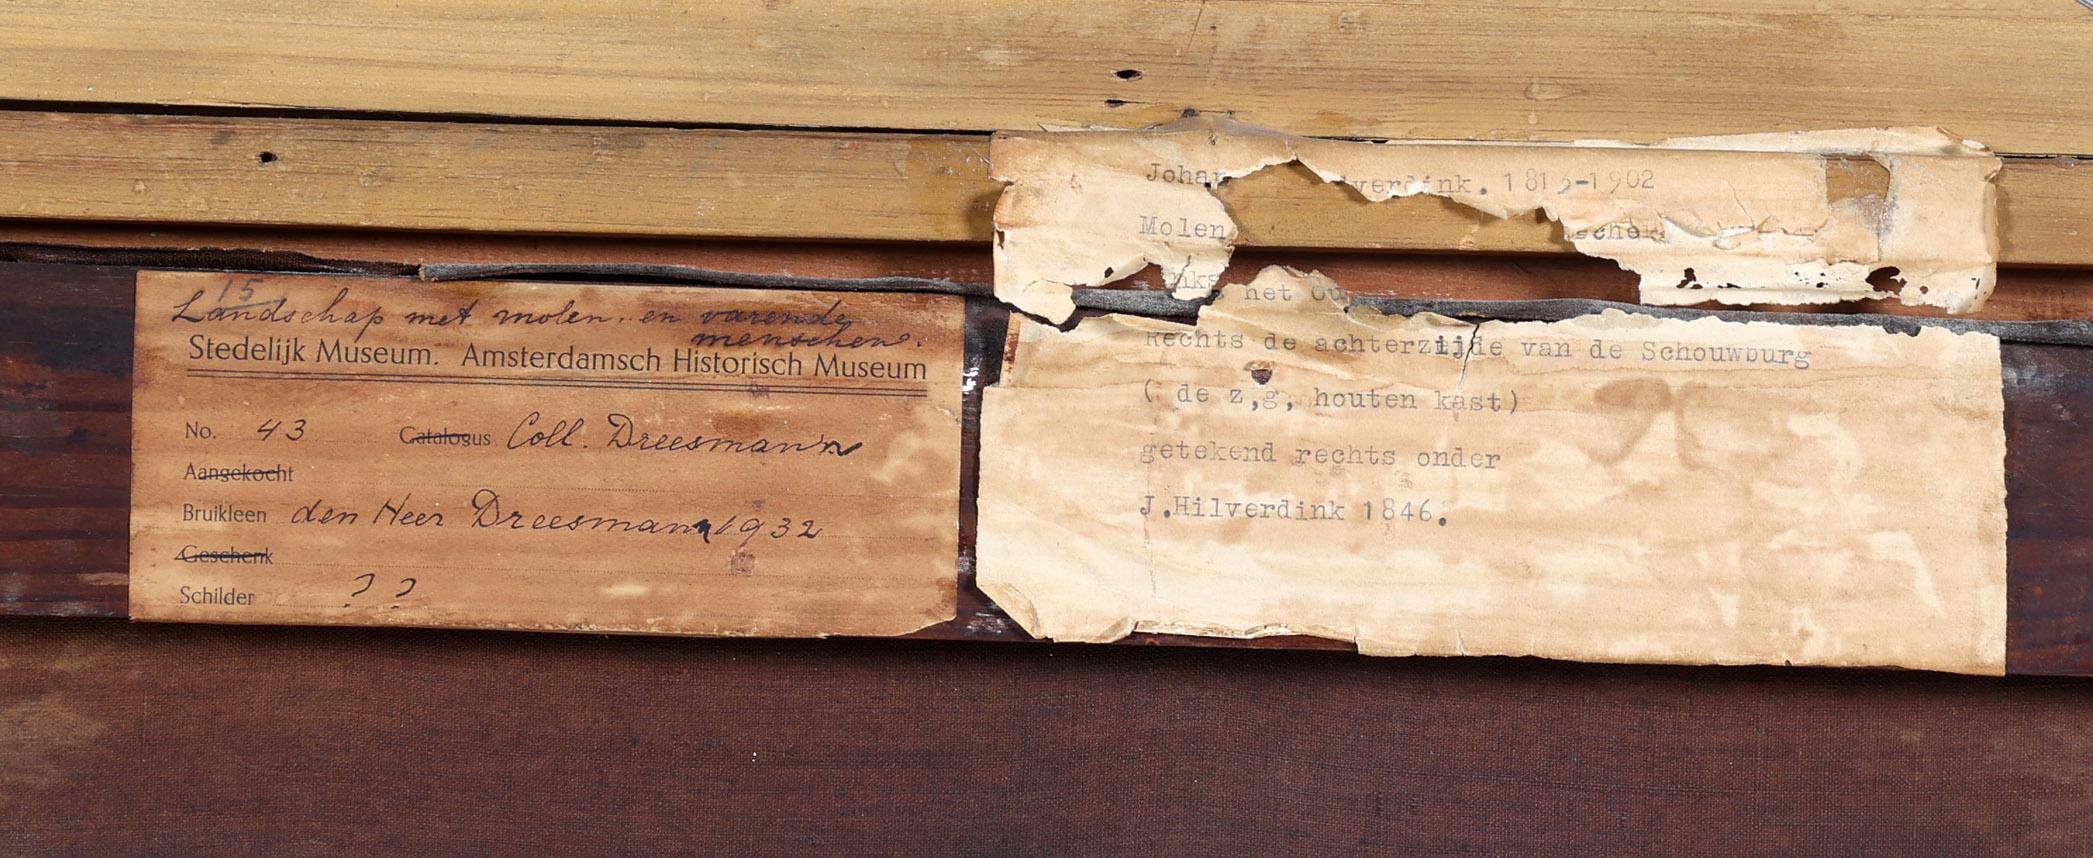 15
Landschap met molen. en varende
menschen.
Stedelijk Museum. Amsterdamsch Historisch Museum
No. 43 Catalogus Coll. Dreesmann
Aangekocht
Bruikleen den Heer Dreesmann 1932
Geschenk
Schilder ? ?
Johan lverdink. 1813-1902
Molen
nks het Ou
Rechts de achterzijde van de Schouwburg
( de z,g, houten kast)
getekend rechts onder
J.Hilverdink 1846.